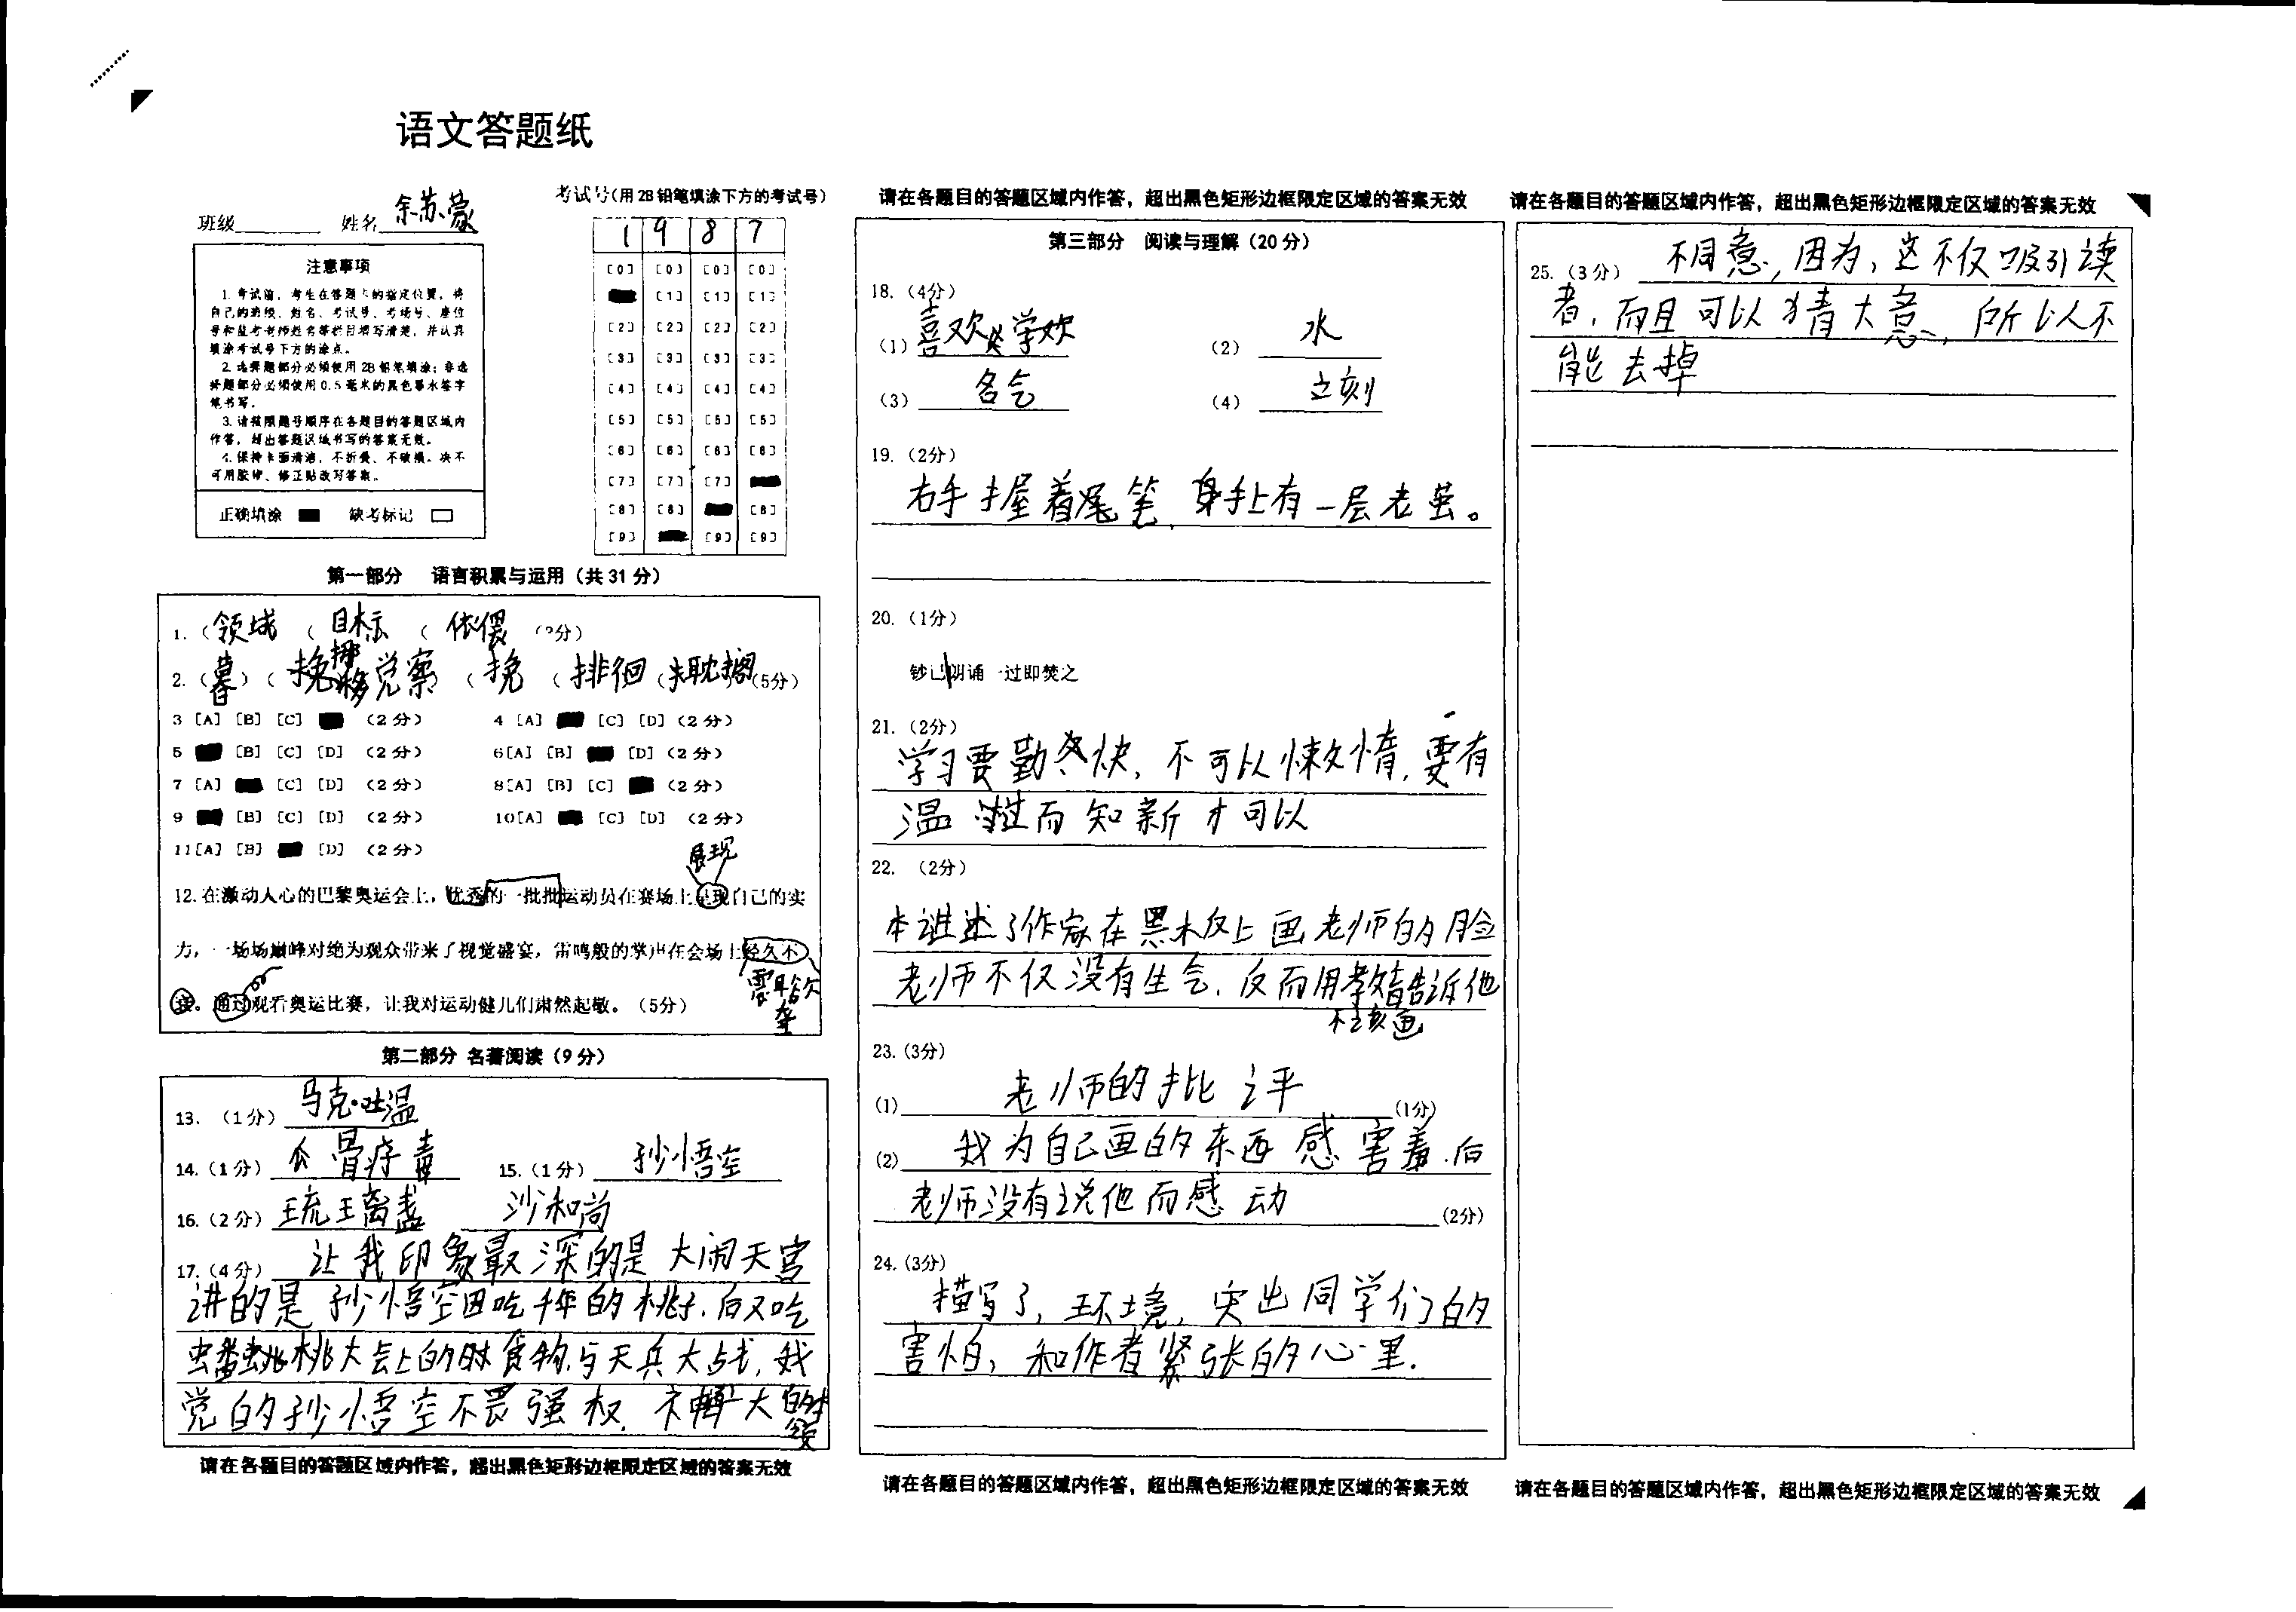 语文答题纸
班级 姓名 余苏蒙
考试号(用 2B 铅笔填涂下方的考试号)
1 9 8 7
[0] [0] [0] [0]
[1] [1] [1]
[2] [2] [2] [2]
[3] [3] [3] [3]
[4] [4] [4] [4]
[5] [5] [5] [5]
[6] [6] [6] [6]
[7] [7] [7]
[8] [8] [8]
[9] [9] [9]
注意事项
1. 考试前，考生在答题卡的指定位置，将
自己的班级、姓名、考试号、考场号、座位
号和监考老师姓名等栏目填写清楚，并认真
填涂考试号下方的涂点。
2. 选择题部分必须使用 2B 铅笔填涂；非选
择题部分必须使用 0.5 毫米的黑色墨水签字
笔书写。
3. 请按照题号顺序在各题目的答题区域内
作答，超出答题区域书写的答案无效。
4. 保持卡面清洁，不折叠、不破损。决不
可用胶带、修正贴改写答案。
正确填涂 缺考标记
第一部分 语言积累与运用（共 31 分）
1.（领域 （ 目标 （ 依偎 （3分）
2.（暮）（ 挪移 觉察）（ 挽 （ 排徊 （ 耽搁（5分）
3 [A] [B] [C] （2 分） 4 [A] [C] [D]（2 分）
5 [B] [C] [D] （2 分） 6[A] [B] [D]（2 分）
7 [A] [C] [D] （2 分） 8[A] [B] [C] （2 分）
9 [B] [C] [D] （2 分） 10[A] [C] [D] （2 分）
11[A] [B] [D] （2 分）
展现
12. 在激动人心的巴黎奥运会上，优秀的一批批运动员在赛场上呈现自己的实
力，一场场巅峰对绝为观众带来了视觉盛宴，雷鸣般的掌声在会场上经久不
震耳欲聋
。通过观看奥运比赛，让我对运动健儿们肃然起敬。（5分）
第二部分 名著阅读（9 分）
13. （1 分） 马克·吐温
14.（1 分） 骨疗毒 15.（1 分） 孙悟空
16.（2 分） 琉璃盏 沙和尚
17.（4 分） 让我印象最深的是大闹天宫
讲的是孙悟空因吃千年的桃子，后又吃
蟠桃大会上的食物，与天兵大战，我
觉的孙悟空不畏强权， 大的本领
请在各题目的答题区域内作答，超出黑色矩形边框限定区域的答案无效
请在各题目的答题区域内作答，超出黑色矩形边框限定区域的答案无效
第三部分 阅读与理解（20 分）
18.（4分）
（1）喜欢学欢 （2） 水
（3） 名气 （4） 立刻
19.（2分）
右手握着尾笔，身手上有一层老茧。
20.（1分）
钞已朗诵一过即焚之
21.（2分）
学习要勤快，不可以懒惰，要有
温 而知新才可以
22. （2分）
本 述了作家在黑板上画老师的脸
老师不仅没有生气，反而用教告诉他
不该画
23.（3分）
（1） 老师的批评 （1分）
（2） 我为自己画的东西感害羞，后
老师没有说他而感动 （2分）
24.（3分）
描写了，环境，突出同学们的
害怕，和作者紧张的心里.
请在各题目的答题区域内作答，超出黑色矩形边框限定区域的答案无效
请在各题目的答题区域内作答，超出黑色矩形边框限定区域的答案无效
25.（3 分） 不同意，因为，这不仅吸引读
者，而且可以猜大意，所以不
能去掉
请在各题目的答题区域内作答，超出黑色矩形边框限定区域的答案无效